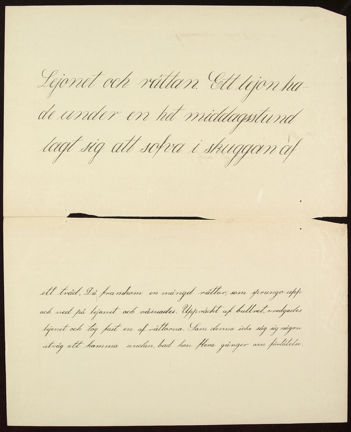 Lejonet och råttan. Ett lejon ha-
de under en het middagsstund
lagt sig att sofva i skuggan af
ett träd. Då framkom en mängd råttor, som sprungo upp
och ned på lejonet och väsnades. Uppväckt af bullret, vredgades
lejonet och tog fast en af råttorna. Som denna icke såg sig någon
utväg att komma undan, bad hon flera gånger om förlåtelse.